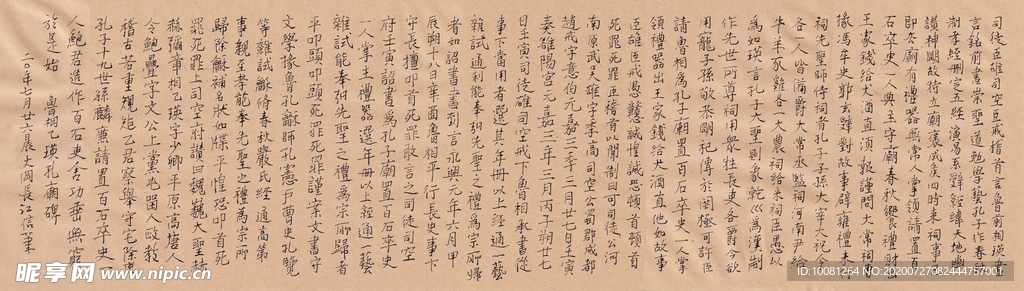 司徒臣雄司空臣戒稽首言魯前相瑛書
言詔書崇聖道勉學藝孔子作春秋
制孝經刪定五經演易系辭經緯天地幽
讚神明故特立廟褒成侯四時來祠事已
即去廟有禮器無常人掌領請置百
石卒史一人典主守廟春秋饗禮財出
王家錢給犬酒直須報謹問大常祠曹
掾馮牟史郭玄辭對故事辟雍禮未行
祠先聖師侍祠者孔子子孫大宰大祝令
各一人皆備爵大常丞監祠河南尹給
牛羊豕雞各一大司農給米祠臣愚以
為如瑛言孔子大聖則象乾巛為漢制
作先世所尊祠用眾牲長吏各爵今欲
加寵子孫敬恭明祀傳於罔極可許臣
請魯相為孔子廟置百石卒史一人掌
領禮器出王家錢給犬酒直他如故事
臣雄臣戒愚戇誠惶誠恐頓首頓首
死罪死罪臣稽首以聞制曰可司徒公河
南原武吳雄字季高司空公蜀郡成都
趙戒字意伯元嘉三年三月廿七日壬寅
奏雄陽宮元嘉三年三月丙子朔廿七
日壬寅司徒雄司空戒下魯相承書從
事下當用者選其年卌以上經通一藝
雜試通利能奉弘先聖之禮為宗所歸
者如詔書書到言永興元年六月甲
辰朔十八日辛酉魯相平行長史事卞
守長擅叩首死罪敢言之司徒司空
府壬寅詔書為孔子廟置百石卒史
一人掌主禮器選年卌以上經通一藝
雜試能奉弘先聖之禮為宗所歸者
平叩頭叩頭死罪死罪謹案文書守
文學掾魯孔龢師孔憲戶曹史孔覽
等雜試龢脩春秋嚴氏經通高第
事親至孝能奉先聖之禮為宗所
歸除龢補名狀如牒平惶恐叩首死
罪死罪上司空府讚曰巍巍大聖赫
赫彌章相乙瑛字少卿平原高唐人
令鮑疊字文公上黨屯留人政教
稽古若重規矩乙君察舉守宅除
孔子十九世孫麟廉請置百石卒史
人鮑君造作百石吏舍功垂無窮
於是始 魯相乙瑛孔廟碑
年七月廿六晨大同長江信筆
昵享网 www.nipic.cn
ID:10081264 NO:20200727082444757001